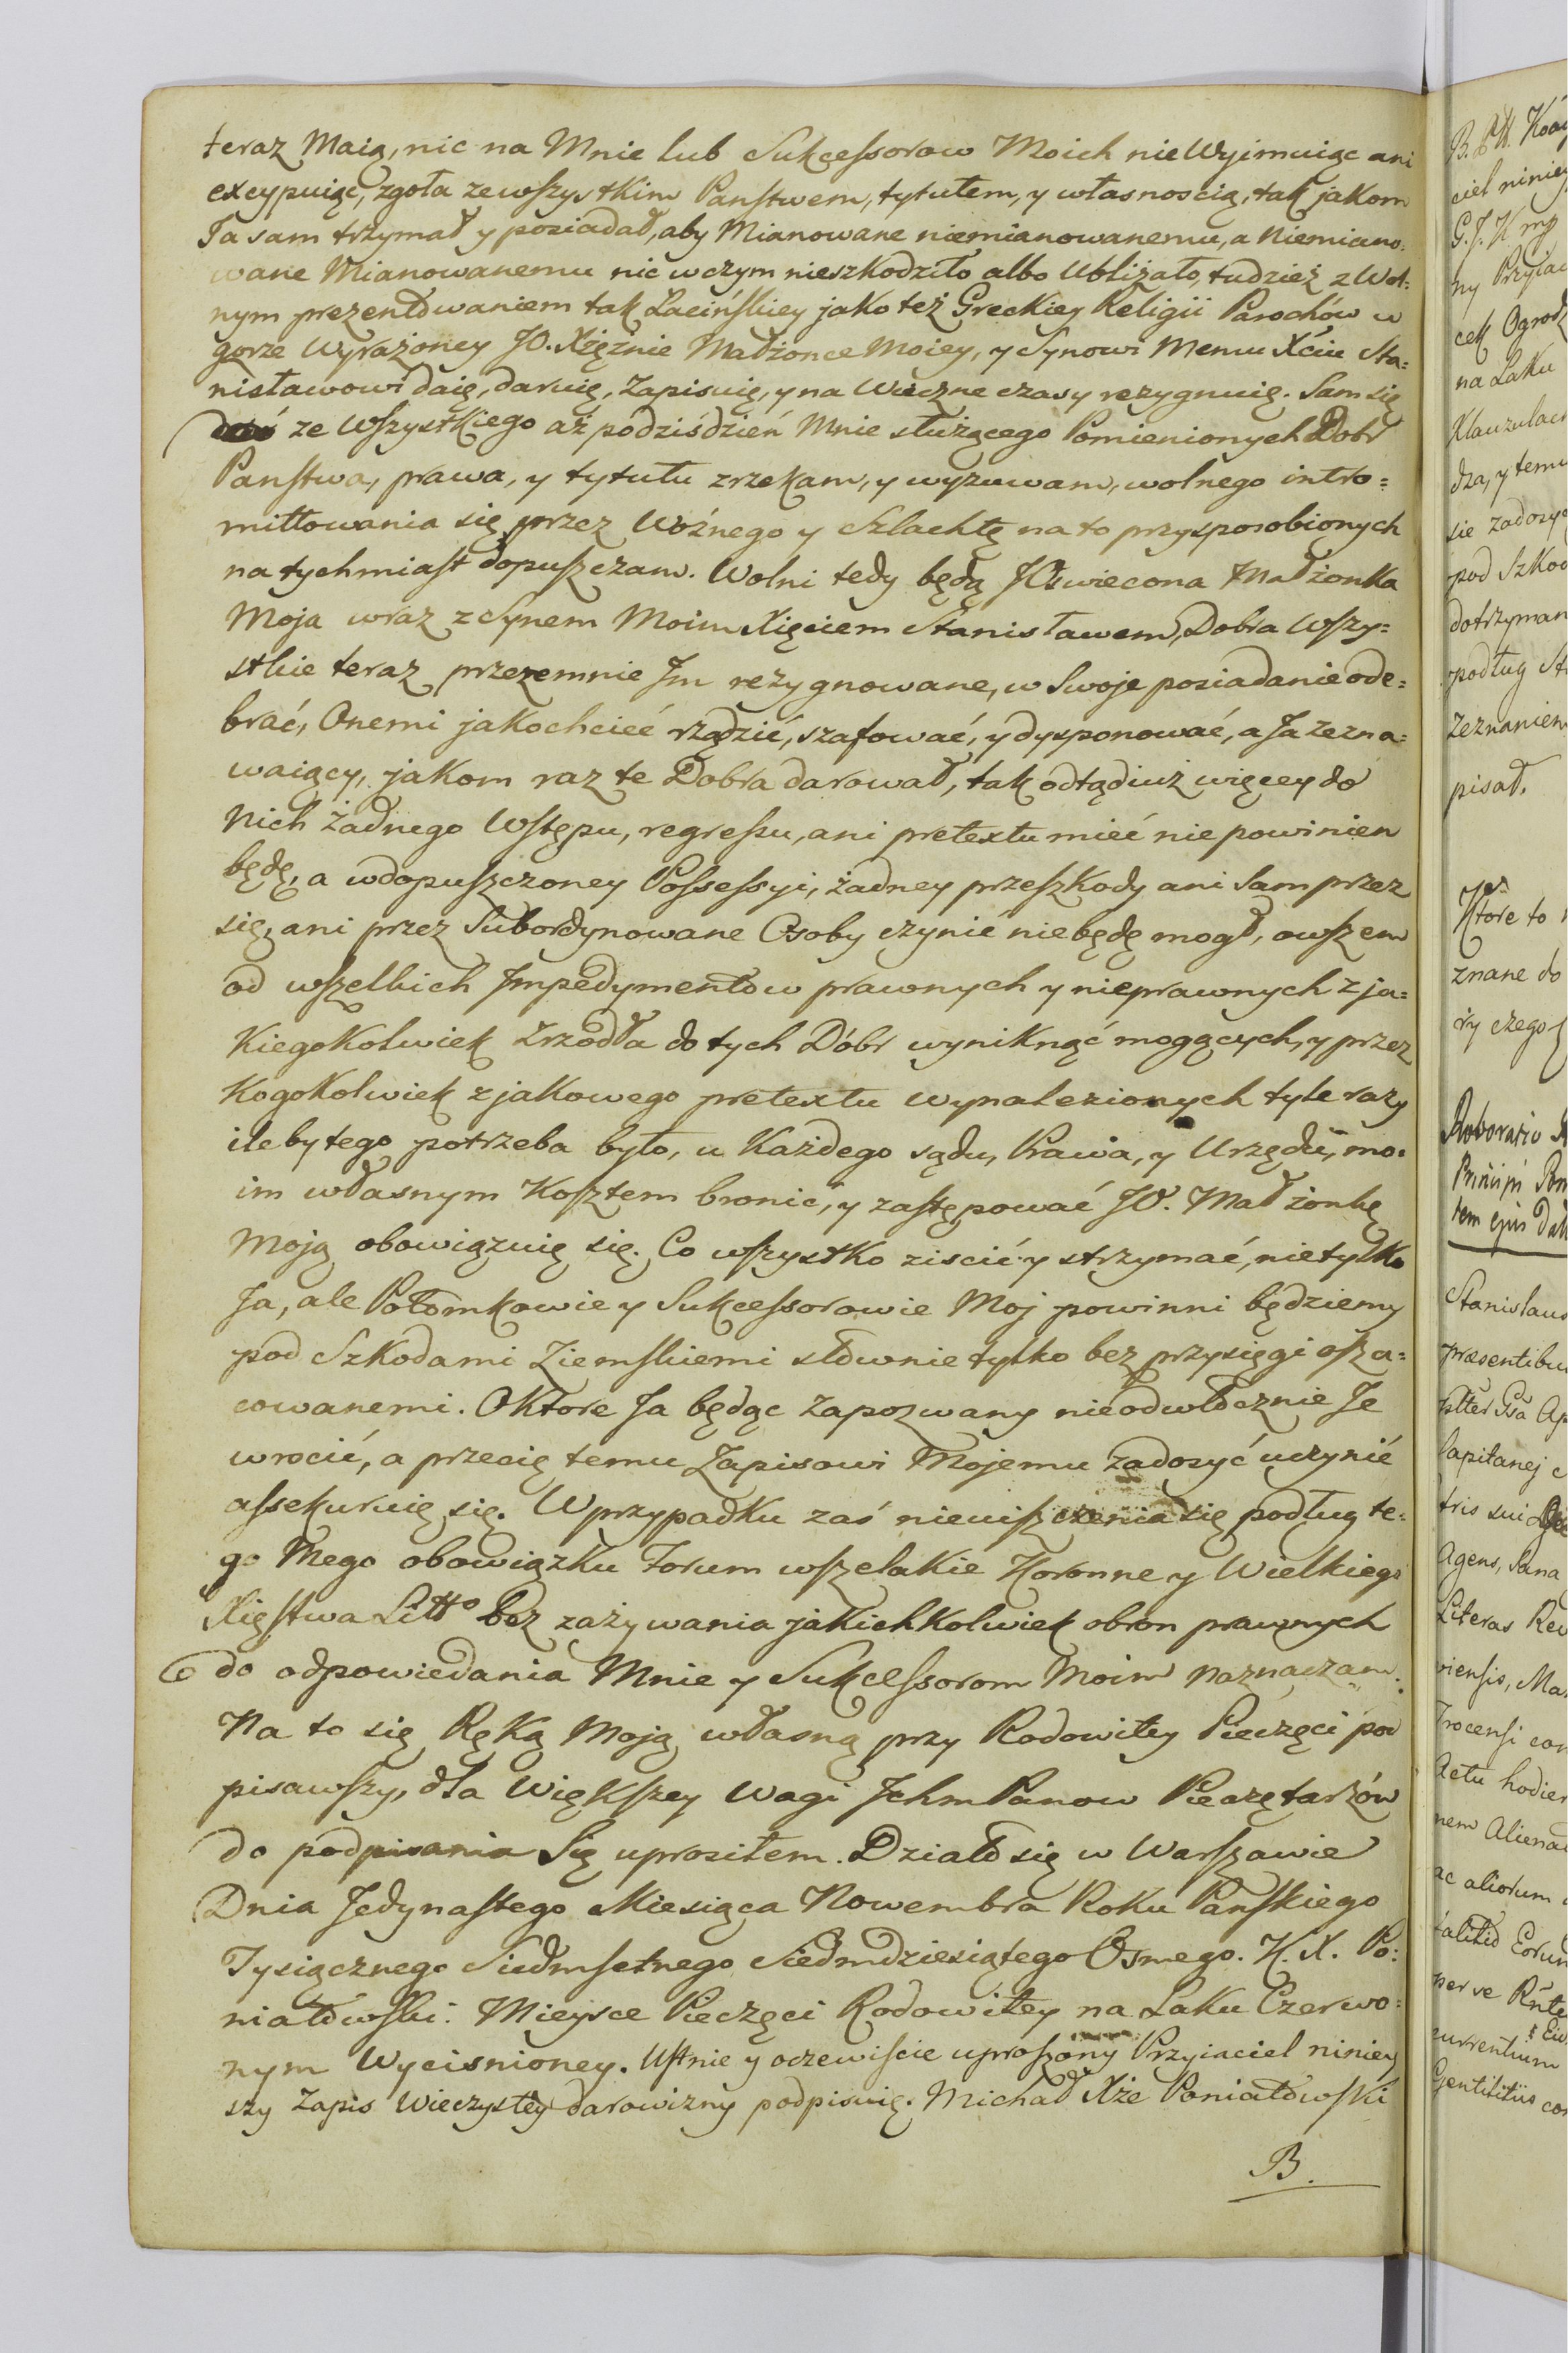 teraz Maią, nic na Mnie lub Sukcessorow Moich nie Wyimuiąc ani
excypuiąc, zgoła ze wszystkim Panstwem, tytułem, y własnoscią, tak jakom
Ja sam trzymał y posiadał, aby Mianowane niemianowanemu, a Niemiano:
wane Mianowanemu nic w czym nieszkodziło albo Ubliżało, tudzież z Wol:
nym prezentowaniem tak Łacińskiey jako też Greckiey Religii Parochów w
gorze Wyrażoney JO. Xiężnie Małżonce Moiey, y Synowi Memu Xciu Sta:
nisławowi daię, daruię, Zapisuię, y na Wieczne czasy rezygnuię. Sam się
ze Wszystkiego aż podziśdzień Mnie służącego Pomienionych Dobr
Panstwa, prawa, y tytułu zrzekam, y wyzuwam, wolnego intro=
mittowania się przez Woźnego y Szlachtę na to przysposobionych
natychmiast dopuszczam. Wolni tedy będą JOswiecona Małżonka
Moja wraz z Synem Moim Xięciem Stanisławem, Dobra Wszy=
stkie teraz przezemnie Im rezygnowane, w Swoje posiadanie ode=
brać, Onemi jako chcieć rządzić, szafować, y dysponować, a Ja zezna=
waiący, jakom raz te Dobra darował, tak odtąd iuż więcey do
Nich żadnego Wstępu, regressu, ani pretextu mieć nie powinien
będę, a w dopuszczoney Possessyi, żadney przeszkody ani Sam przez
się, ani przez Subordynowane Osoby czynić niebędę mogł, owszem
od wszelkich Impedymentow prawnych y nieprawnych z ja=
kiegokolwiek Zrzodła do tych Dóbr wyniknąć mogących, y przez
Kogokolwiek z jakowego pretextu wynalezionych tyle razy
ileby tego potrzeba było, u Każdego sądu, Prawa, y Urzędu, mo=
im własnym Kosztem bronić, y zastępować JO. Małżonkę
Moją obowiązuię się. Co wszystko ziscić y strzymać, nie tylko
Ja, ale Potomkowie y Sukcessorowie Moj powinni będziemy
pod Szkodami Ziemskiemi słownie tylko bez przysięgi osza=
cowanemi. O Ktore Ja będąc Zapozwany nieodwłocznie Je
wrocić, a przecię temu Zapisowi Mojemu zadosyć uczynić
assekuruię się. W przypadku zaś nieuiszczenia się podług te=
go Mego obowiązku Forum wszelakie Koronne y Wielkiego
Xięstwa Litto bez zażywania jakichkolwiek obron prawnych
do odpowiedania Mnie y Sukcessorom Moim naznaczam.
Na to się Ręką Moją własną przy Rodowitey Pieczęci pod
pisawszy, dla Większey Wagi Ichm Panow Pieczętarzów
do podpisania Się uprosiłem. Działo się w Warszawie
Dnia Jedynastego Miesiąca Nowembra Roku Panskiego
Tysiącznego Siedmsetnego Siedmdziesiątego Osmego. K. X. Po:
niatowski. Mieysce Pieczęci Rodowitey na Laku Czerwo:
nym Wycisnioney. Ustnie y oczewiscie uproszony Przyiaciel niniey
szy Zapis Wieczystey darowizny podpisuię. Michał Xże Poniatowski
B.
ciel niniey
na Laku
pod Szkod
dotrzyman
podług
zeznaniem
pisał.
Ktore to
znane do
Stanislaus
præsentibus
Agens,
Literas